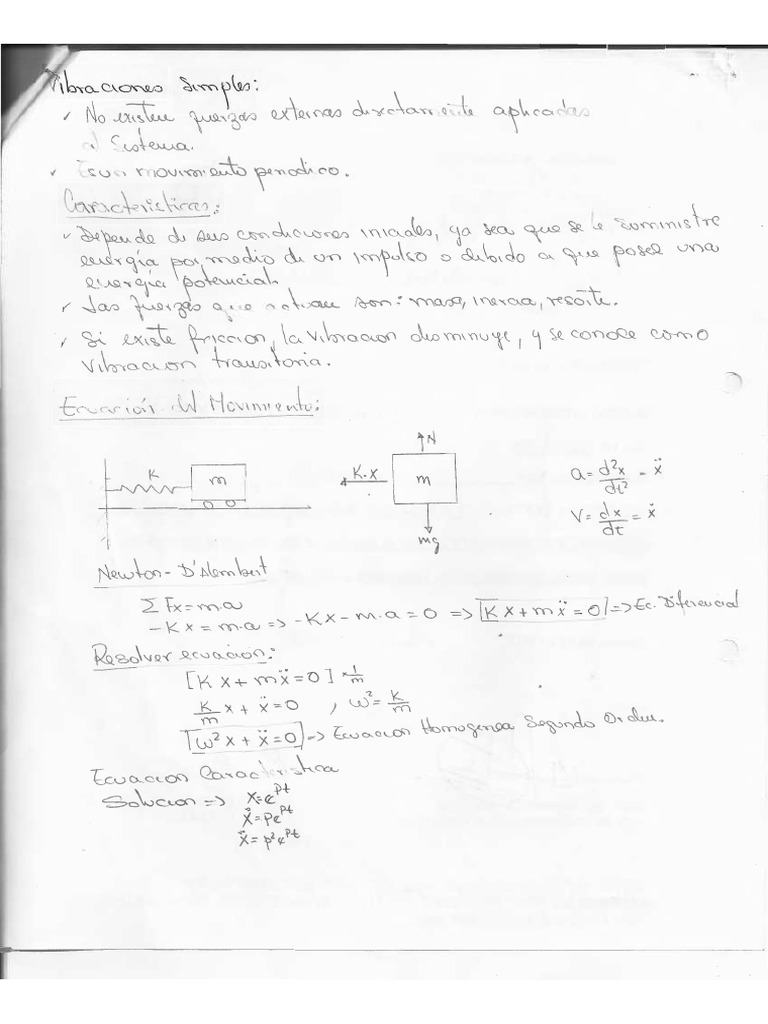 Vibraciones Simples:
✓ No existen fuerzas externas directamente aplicadas
al Sistema.
✓ Es un movimiento periodico.
Caracteristicas:
✓ Depende di sus condiciones iniciales, ya sea que se le suministre
energía por medio di un impulso o debido a que posee una
energía potencial.
✓ Las fuerzas que actuan son: masa, inercia, resorte.
✓ Si existe friccion, la vibracion disminuye, y se conoce como
vibracion transitoria.
Ecuación del Movimiento:
K
m
K·X
N
m
mg
a = d²x/dt² = ẍ
V = dx/dt = ẋ
Newton - D'Alembert
∑Fx = m·a
-Kx = m·a => -Kx - m·a = 0 => [Kx + mẍ = 0] => Ec. Diferencial
Resolver ecuacion:
[Kx + mẍ = 0] × 1/m
K/m x + ẍ = 0 , ω² = K/m
[ω²x + ẍ = 0] => Ecuacion Homogenea Segundo Orden.
Ecuacion Caracteristica
Solucion => x = e^pt
ẋ = Pe^pt
ẍ = p²e^pt